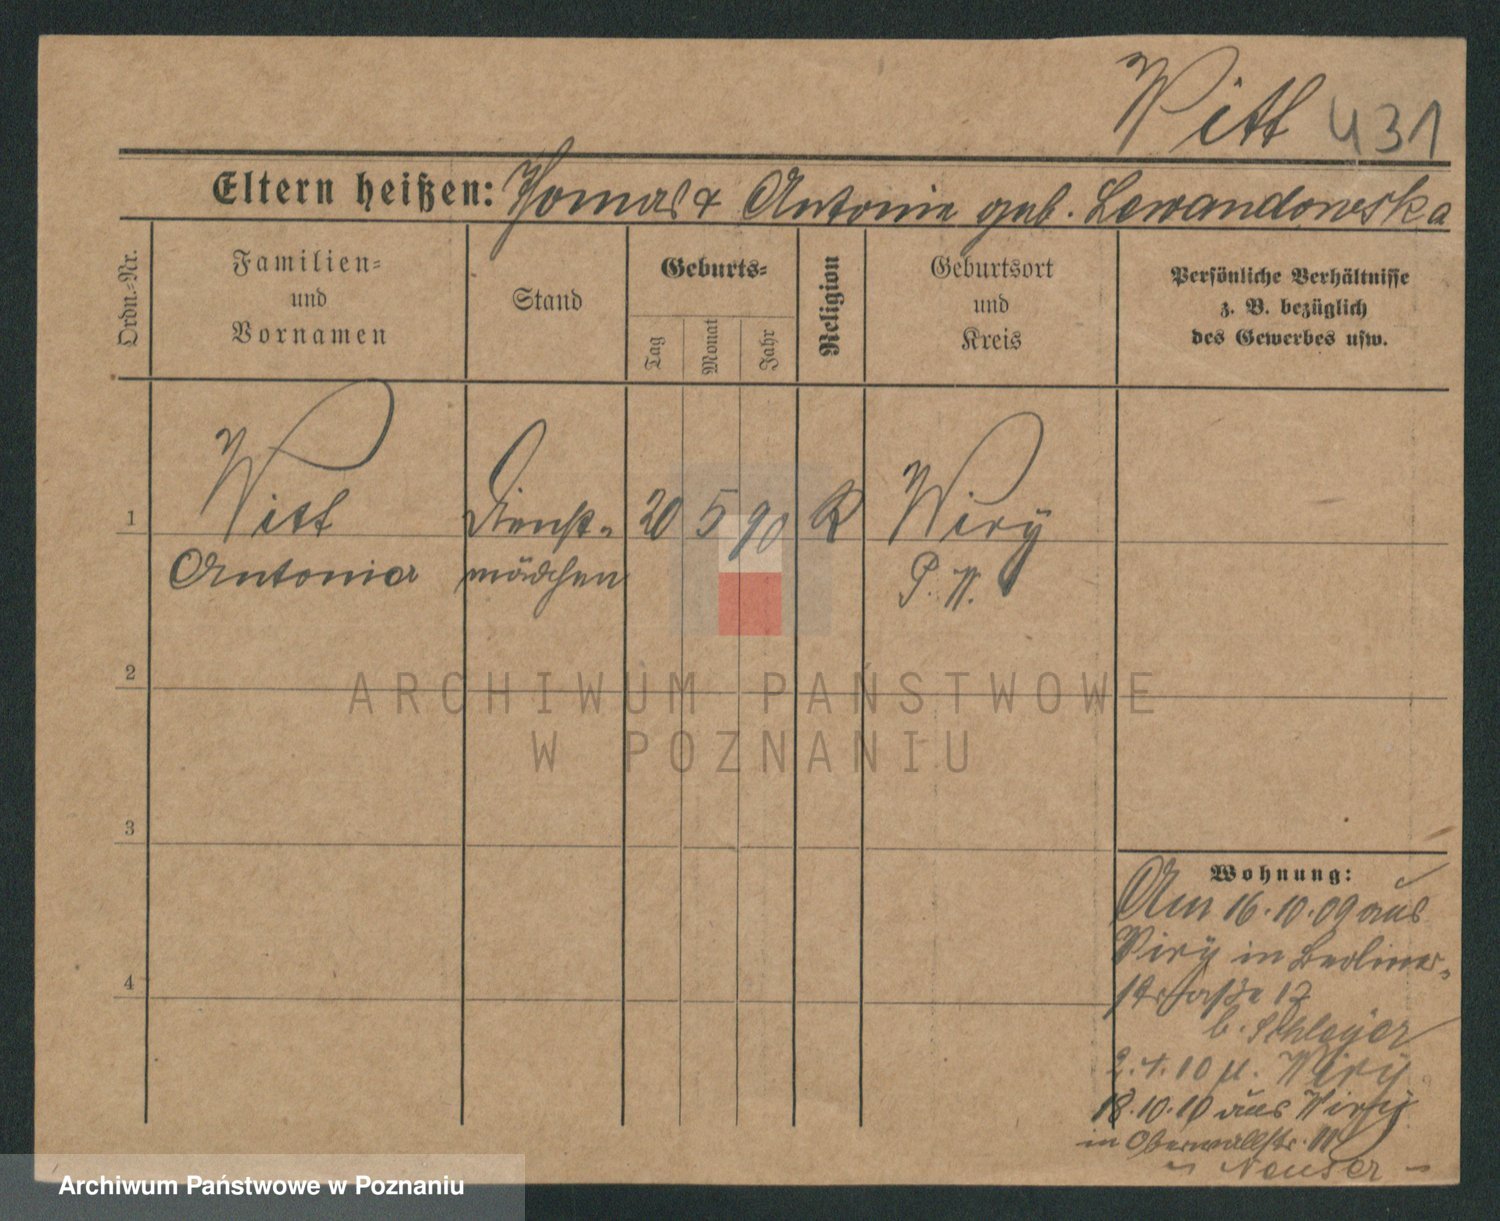 Witt 431
Eltern heißen: Thomas & Antonie geb. Lewandowska
Ordn.-Nr.
Familien-
und
Vornamen
Stand
Geburts-
Tag
Monat
Jahr
Religion
Geburtsort
und
Kreis
Persönliche Verhältnisse
z. B. bezüglich
des Gewerbes usw.
1 Witt Dienst- 20 5 90 K Wiry
Antonia mädchen P. W.
2
ARCHIWUM PAŃSTWOWE
W POZNANIU
3
Wohnung:
Am 16.10.09 aus
Wiry in Berliner-
straße 17
b. Schleyer
2.4.10 n. Wiry
18.10.10 aus Wiry
in Oberwallstr. 11
Archiwum Państwowe w Poznaniu
4